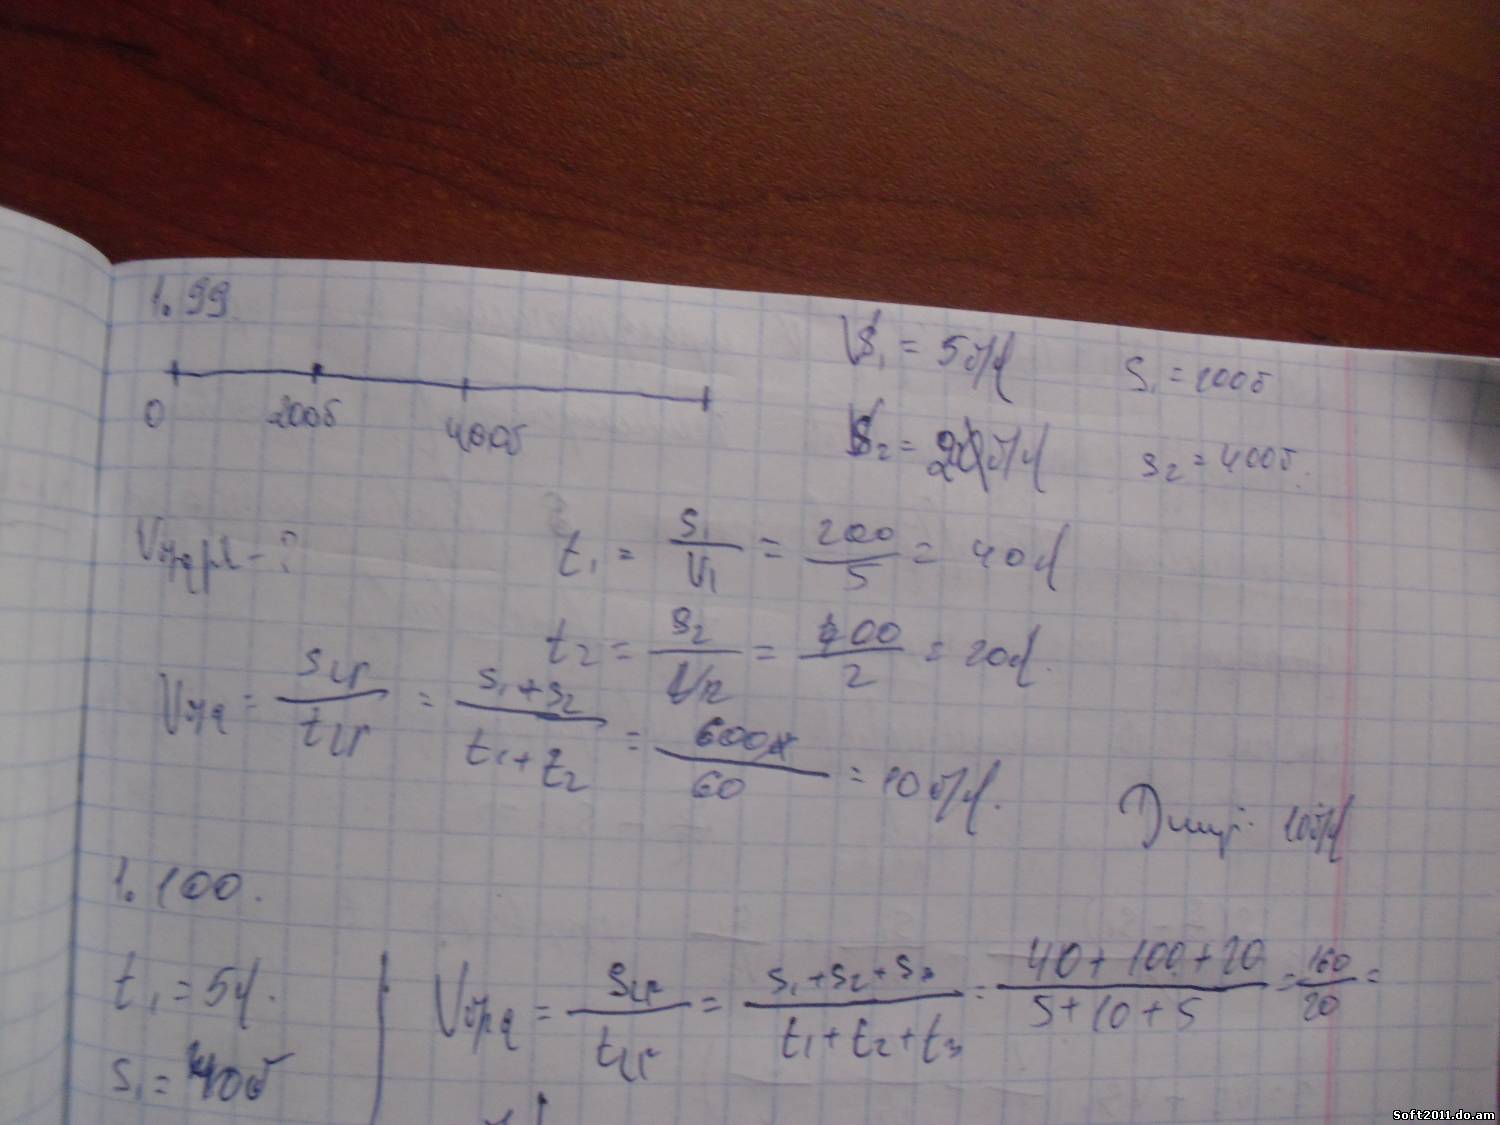 1.99
0 200մ 400մ
V₁ = 5մ/վ S₁ = 200մ
V₂ = 20մ/վ S₂ = 400մ.
- ?
t₁ = S₁/V₁ = 200/5 = 40վ
t₂ = S₂/V₂ = 400/2 = 20վ.
= S₁+S₂/t₁+t₂ = 600/60 = 10մ/վ.
10մ/վ
1.100.
t₁ = 5վ.
S₁ = 40մ
= S₁+S₂+S₃/t₁+t₂+t₃ = 40+100+20/5+10+5 = 160/20 =
Soft2011.do.am